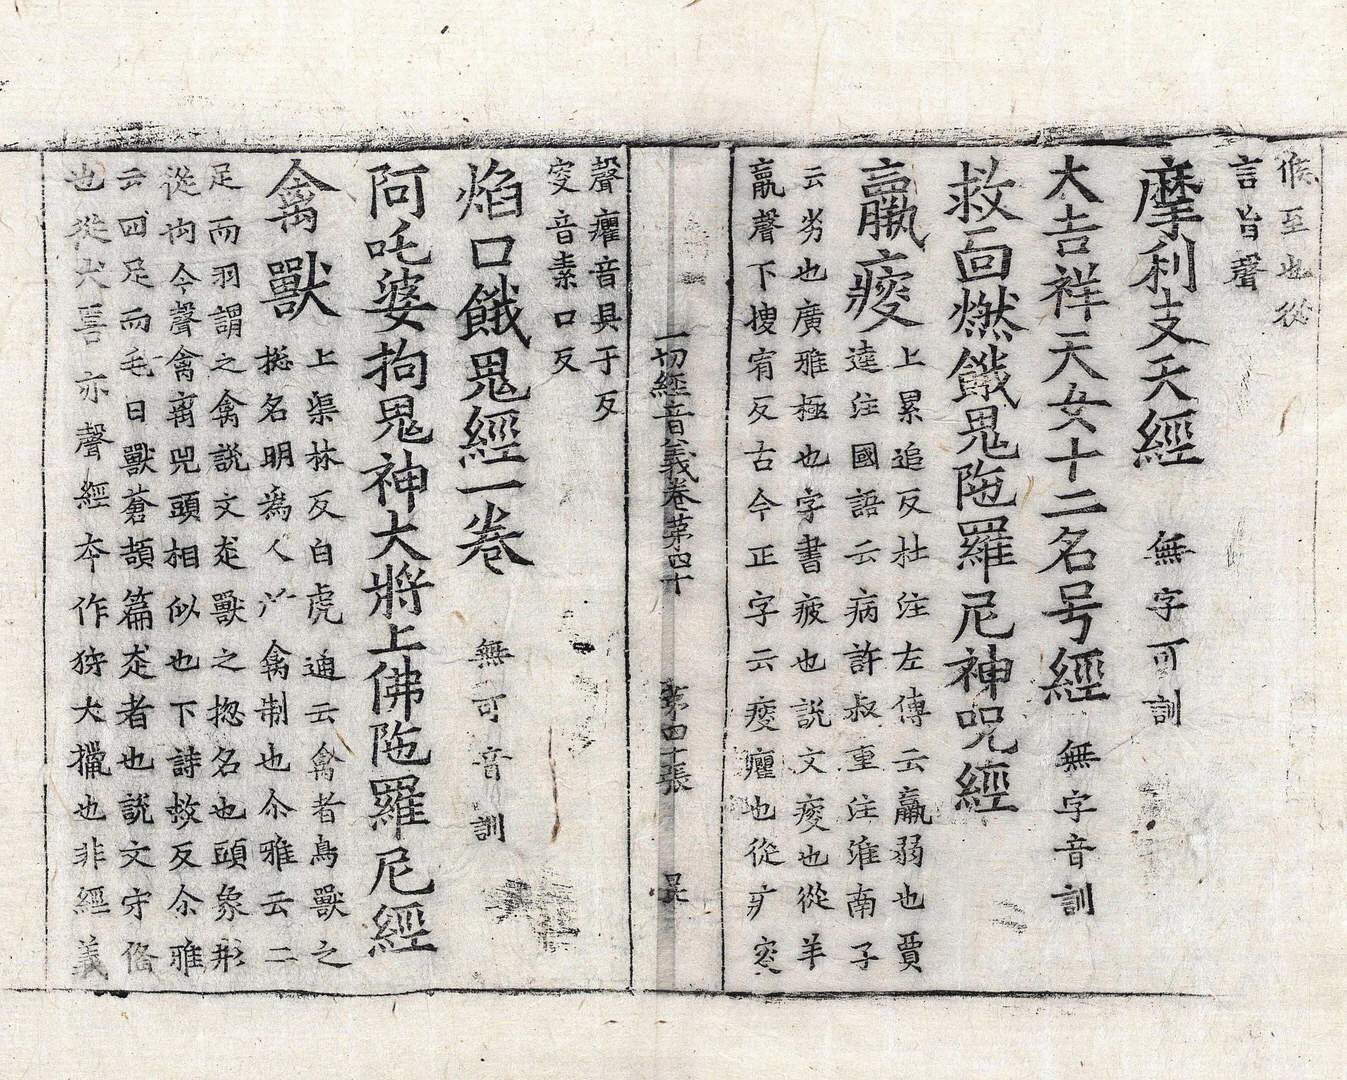 候至也從
言旨聲
摩利支天經 無字可訓
大吉祥天女十二名号經 無字音訓
救面燃餓鬼陁羅尼神呪經
羸瘦 上累追反杜注左傳云羸弱也賈
逵注國語云病許叔重注淮南子
云劣也廣雅極也字書疲也說文瘦也從羊
羸聲下搜宥反古今正字云瘦癯也從疒㝮
一切經音義卷第四十 第四十張
聲癯音具于反
㝮音素口反
焰口餓鬼經一卷 無可音訓
阿吒婆拘鬼神大將上佛陁羅尼經
禽獸 上渠林反白虎通云禽者鳥獸之
揔名明爲人所禽制也尒雅云二
足而羽謂之禽說文走獸之揔名也頭象形
從禸今聲禽离兕頭相似也下詩救反尒雅
云四足而毛曰獸蒼頡篇走者也說文守俻
也從犬嘼亦聲經夲作狩犬獵也非經義